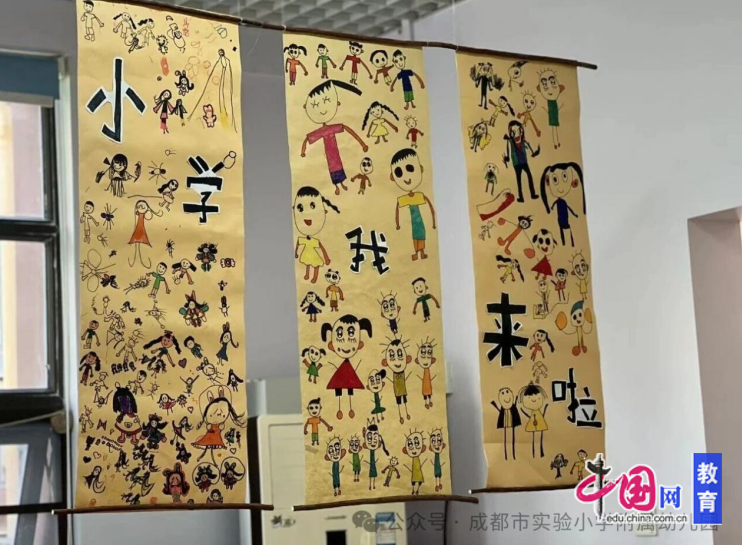 小学
我
来啦
中国网
edu.china.com.cn
教育
公众号·成都市实验小学附属幼儿园